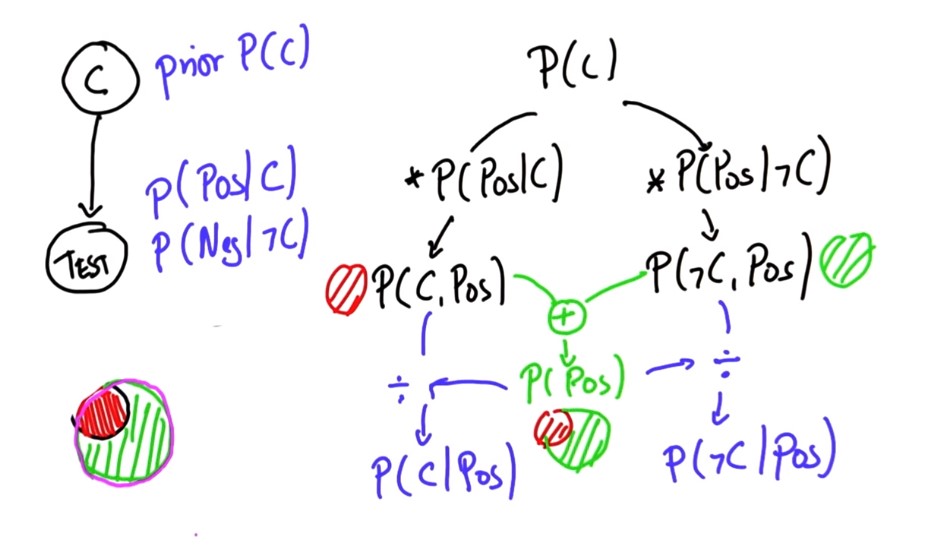 C
prior P(C)
P(Pos|C)
P(Neg|¬C)
TEST
P(C)
* P(Pos|C)
* P(Pos|¬C)
P(C, Pos)
P(¬C, Pos)
+
÷
P(Pos)
÷
P(C|Pos)
P(¬C|Pos)